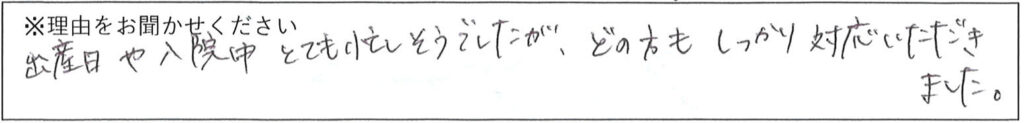 ※理由をお聞かせください
出産日や入院中とても忙しそうでしたが、どの方もしっかり対応いただき
ました。